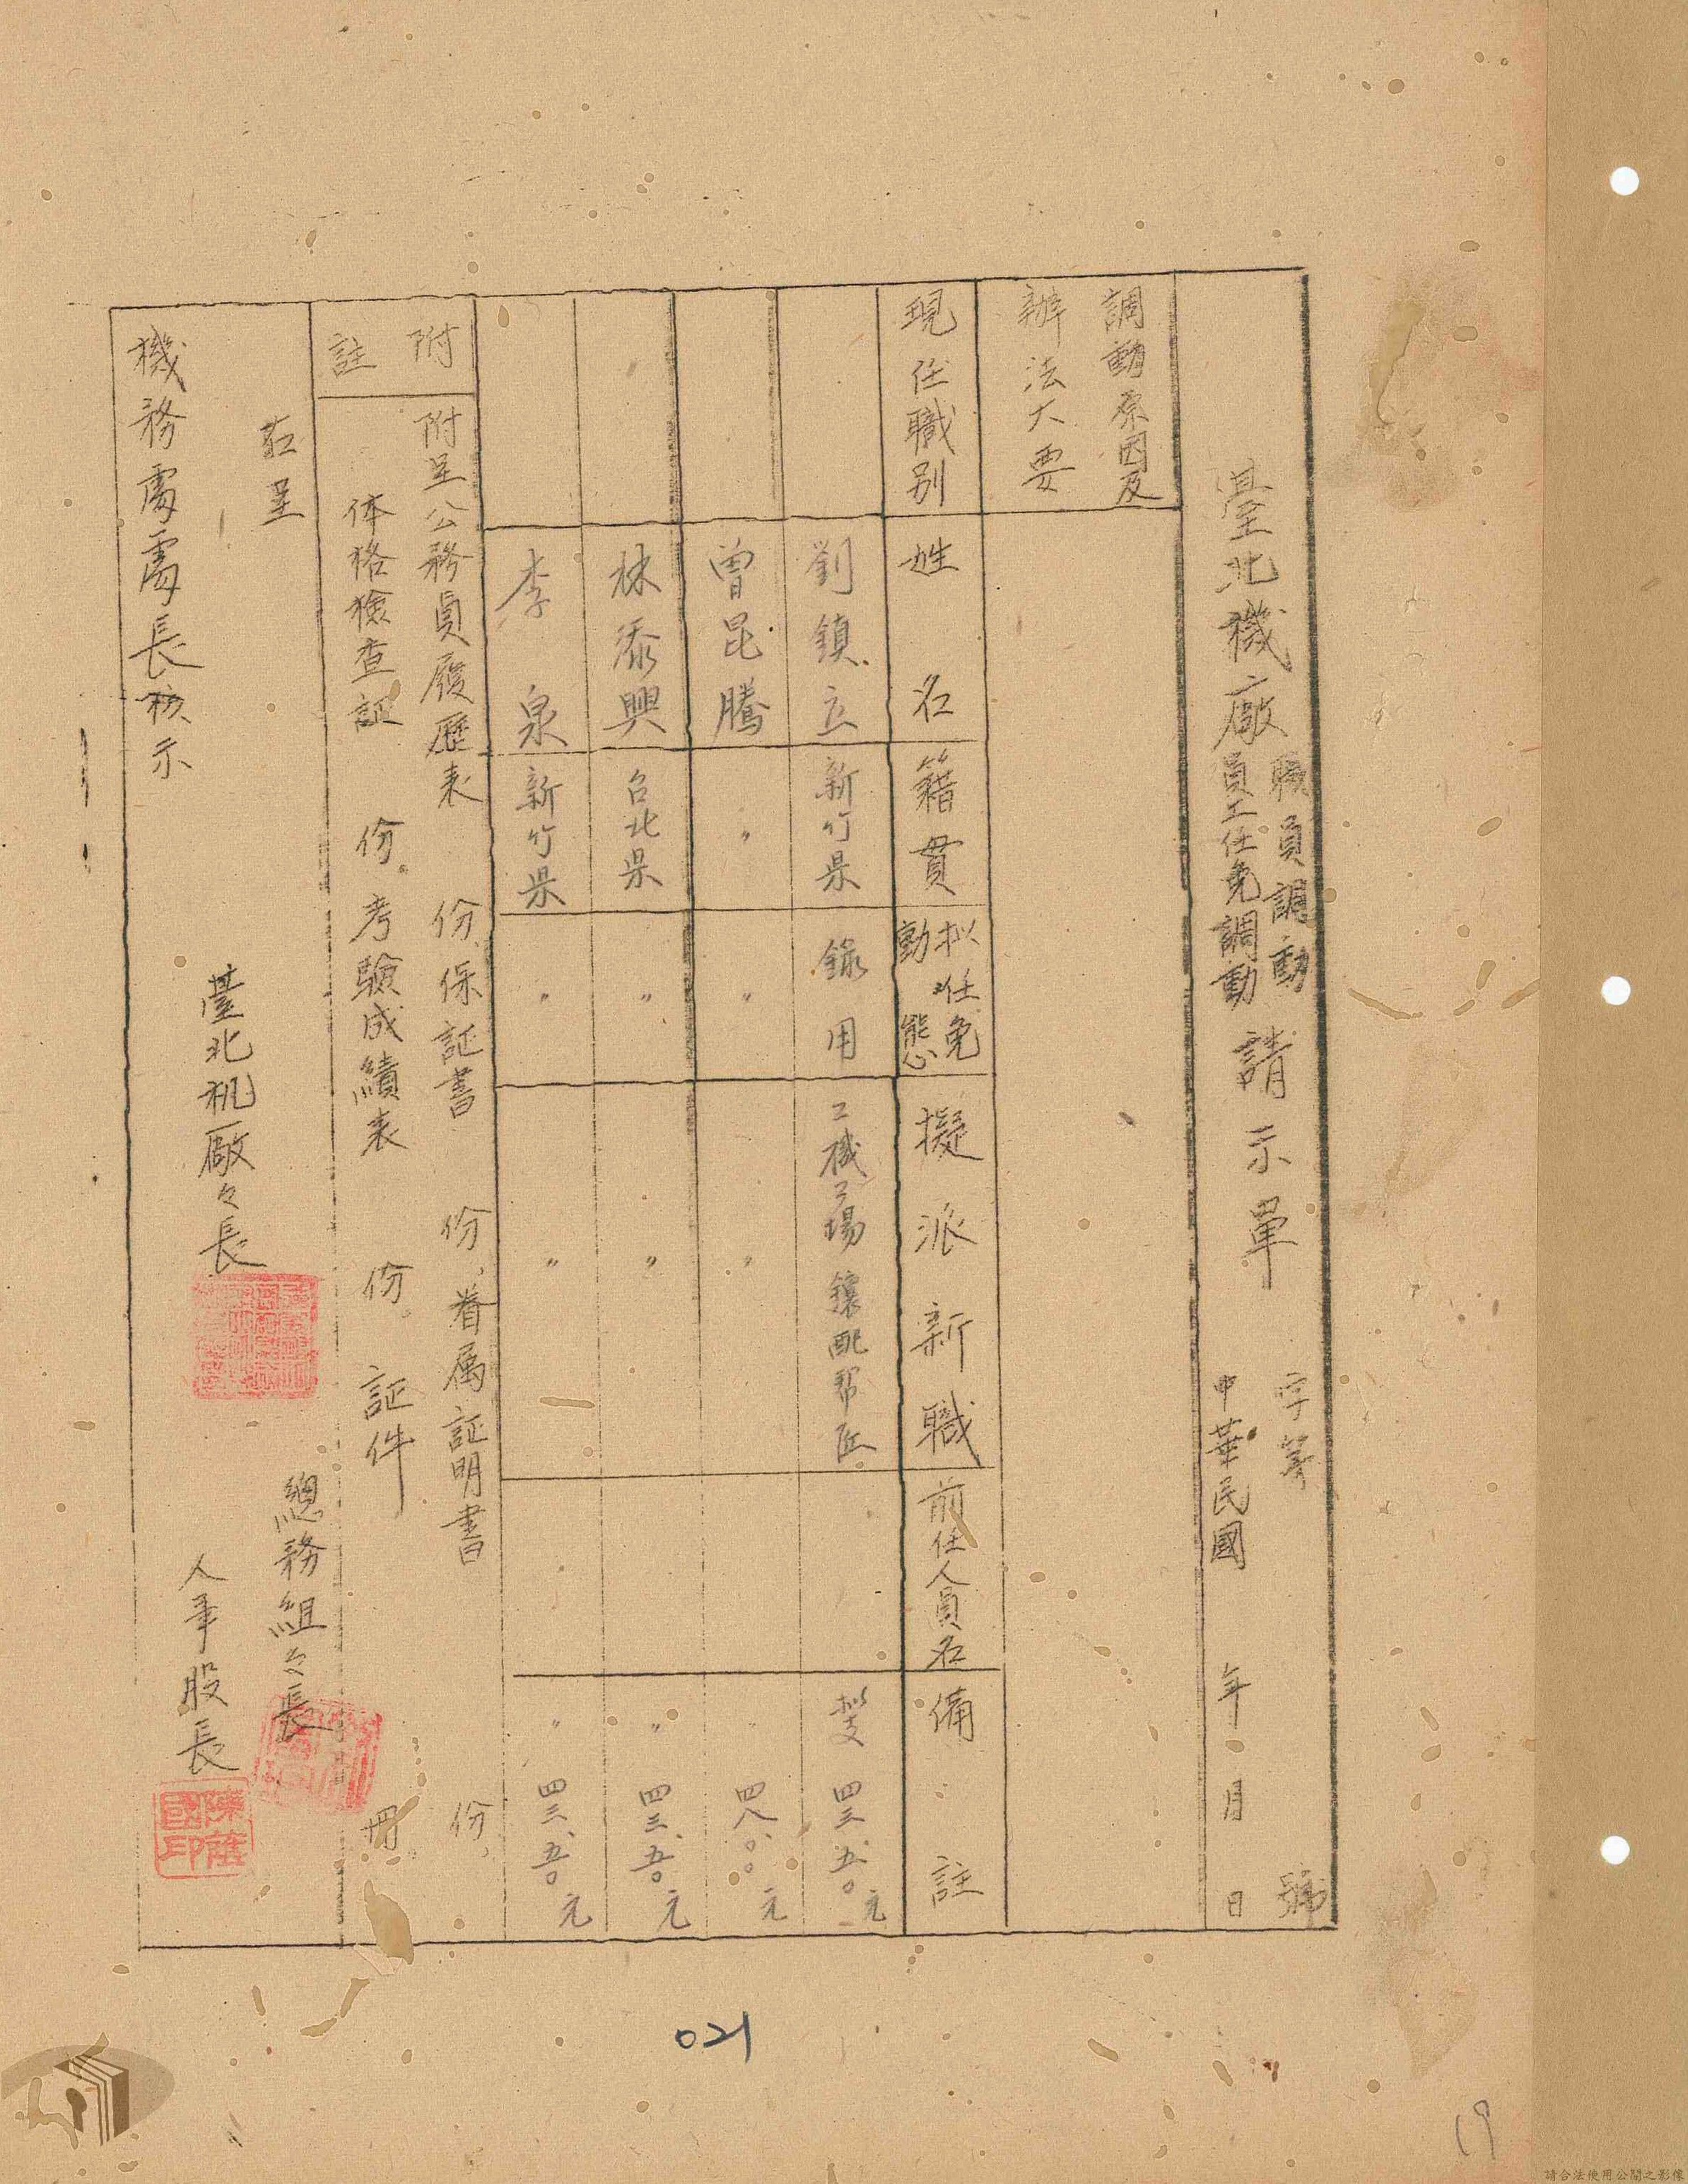 臺北機廠 職員調動 員工任免調動 請示單
字第 號
中華民國 年 月 日
調動原因及
辦法大要
現任職別 姓名 籍貫 拟任免動態 擬派新職 前任人員名 備註
劉鎮立 新竹県 錄用 工機工場 鑲配帮匠 拟支 四三.五〇元
曾昆騰 〃 〃 〃 〃 四八.〇〇元
林添興 台北県 〃 〃 〃 四三.五〇元
李泉 新竹県 〃 〃 〃 四三.五〇元
附註
附呈公務員履歷表 份、保証書 份、眷属証明書 份、
体格檢查証 份。考驗成績表 份。証件 冊
右呈
機務處處長核示
臺北机廠々長
總務組々長
人事股長
國印
021
19
請合法使用公開之影像